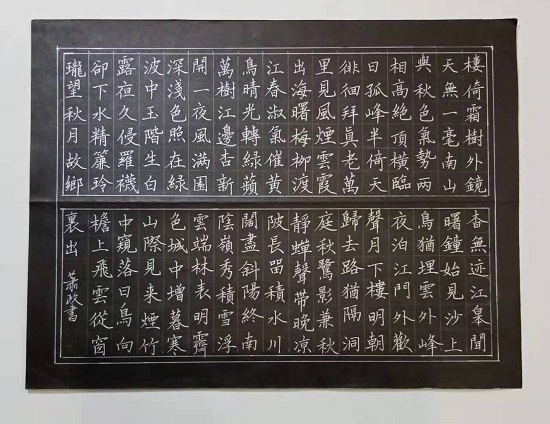 樓倚霜樹外鏡
天無一毫南山
與秋色氣勢兩
相高絕頂橫臨
日孤峰半倚天
徘徊拜真老萬
里見風煙雲霞
出海曙梅柳渡
江春淑氣催黃
鳥晴光轉綠蘋
萬樹江邊杏新
開一夜風滿園
深淺色照在綠
波中玉階生白
露亱久侵羅襪
卻下水精簾玲
瓏望秋月故鄉
杳無迹江皋聞
曙鐘始見沙上
鳥猶埋雲外峰
夜泊江門外歡
聲月下樓明朝
歸去路猶隔洞
庭秋鷺影兼秋
靜蟬聲帶晚凉
陂長留積水川
闊盡斜陽終南
陰嶺秀積雪浮
雲端林表明霽
色城中增暮寒
山際見来煙竹
中窺落日鳥向
檐上飛雲從窗
裏出 蕭政書